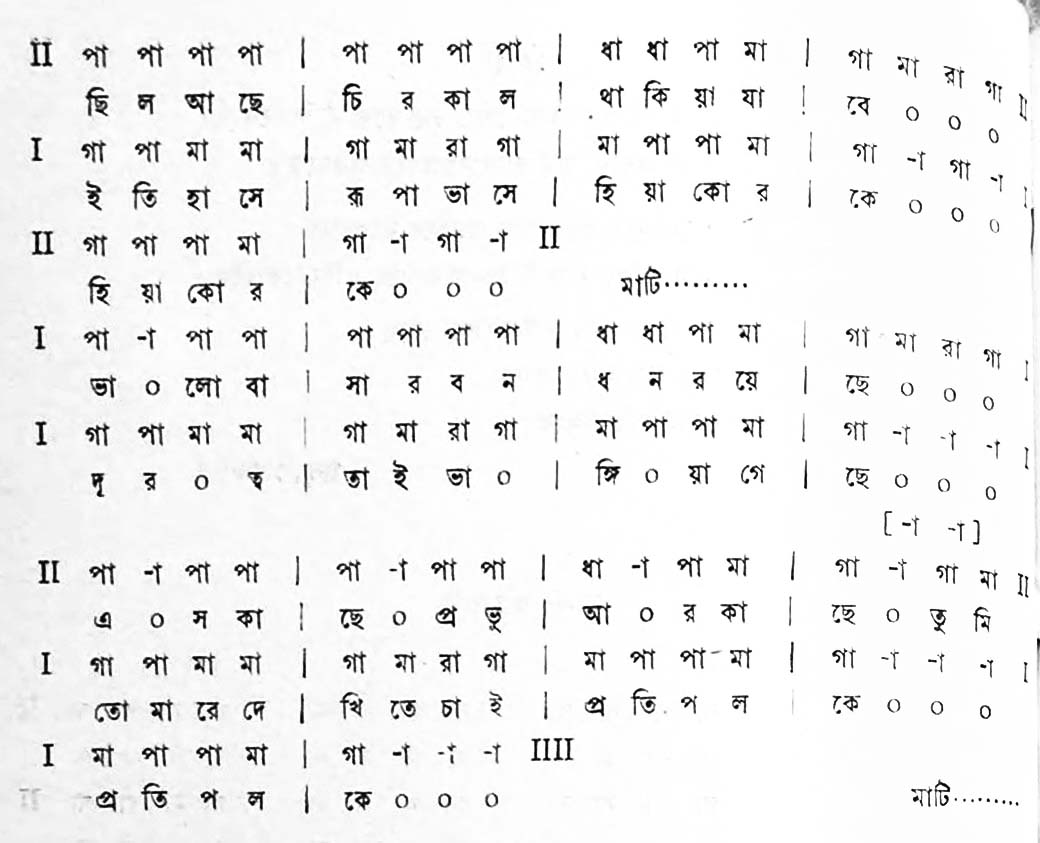 II পা পা পা পা | পা পা পা পা | ধা ধা পা মা | গা মা রা গা II
ছি ল আ ছে | চি র কা ল | থা কি য়া যা | বে ০ ০ ০
I গা পা মা মা | গা মা রা গা | মা পা পা মা | গা -া গা -া I
ই তি হা সে | রূ পা ভা সে | হি য়া কো র | কে ০ ০ ০
II গা পা পা মা | গা -া গা -া II
হি য়া কো র | কে ০ ০ ০ মাটি.........
I পা -া পা পা | পা পা পা পা | ধা ধা পা মা | গা মা রা গা I
ভা ০ লো বা | সা র ব ন | ধ ন র য়ে | ছে ০ ০ ০
I গা পা মা মা | গা মা রা গা | মা পা পা মা | গা -া -া -া I
দূ র ০ ত্ব | তা ই ভা ০ | ঙ্গি ০ য়া গে | ছে ০ ০ ০
[ -া -া ]
II পা -া পা পা | পা -া পা পা | ধা -া পা মা | গা -া গা মা II
এ ০ স কা | ছে ০ প্র ভু | আ ০ র কা | ছে ০ তু মি
I গা পা মা মা | গা মা রা গা | মা পা পা মা | গা -া -া -া I
তো মা রে দে | খি তে চা ই | প্র তি প ল | কে ০ ০ ০
I মা পা পা মা | গা -া -া -া IIII
প্র তি প ল | কে ০ ০ ০ মাটি.........